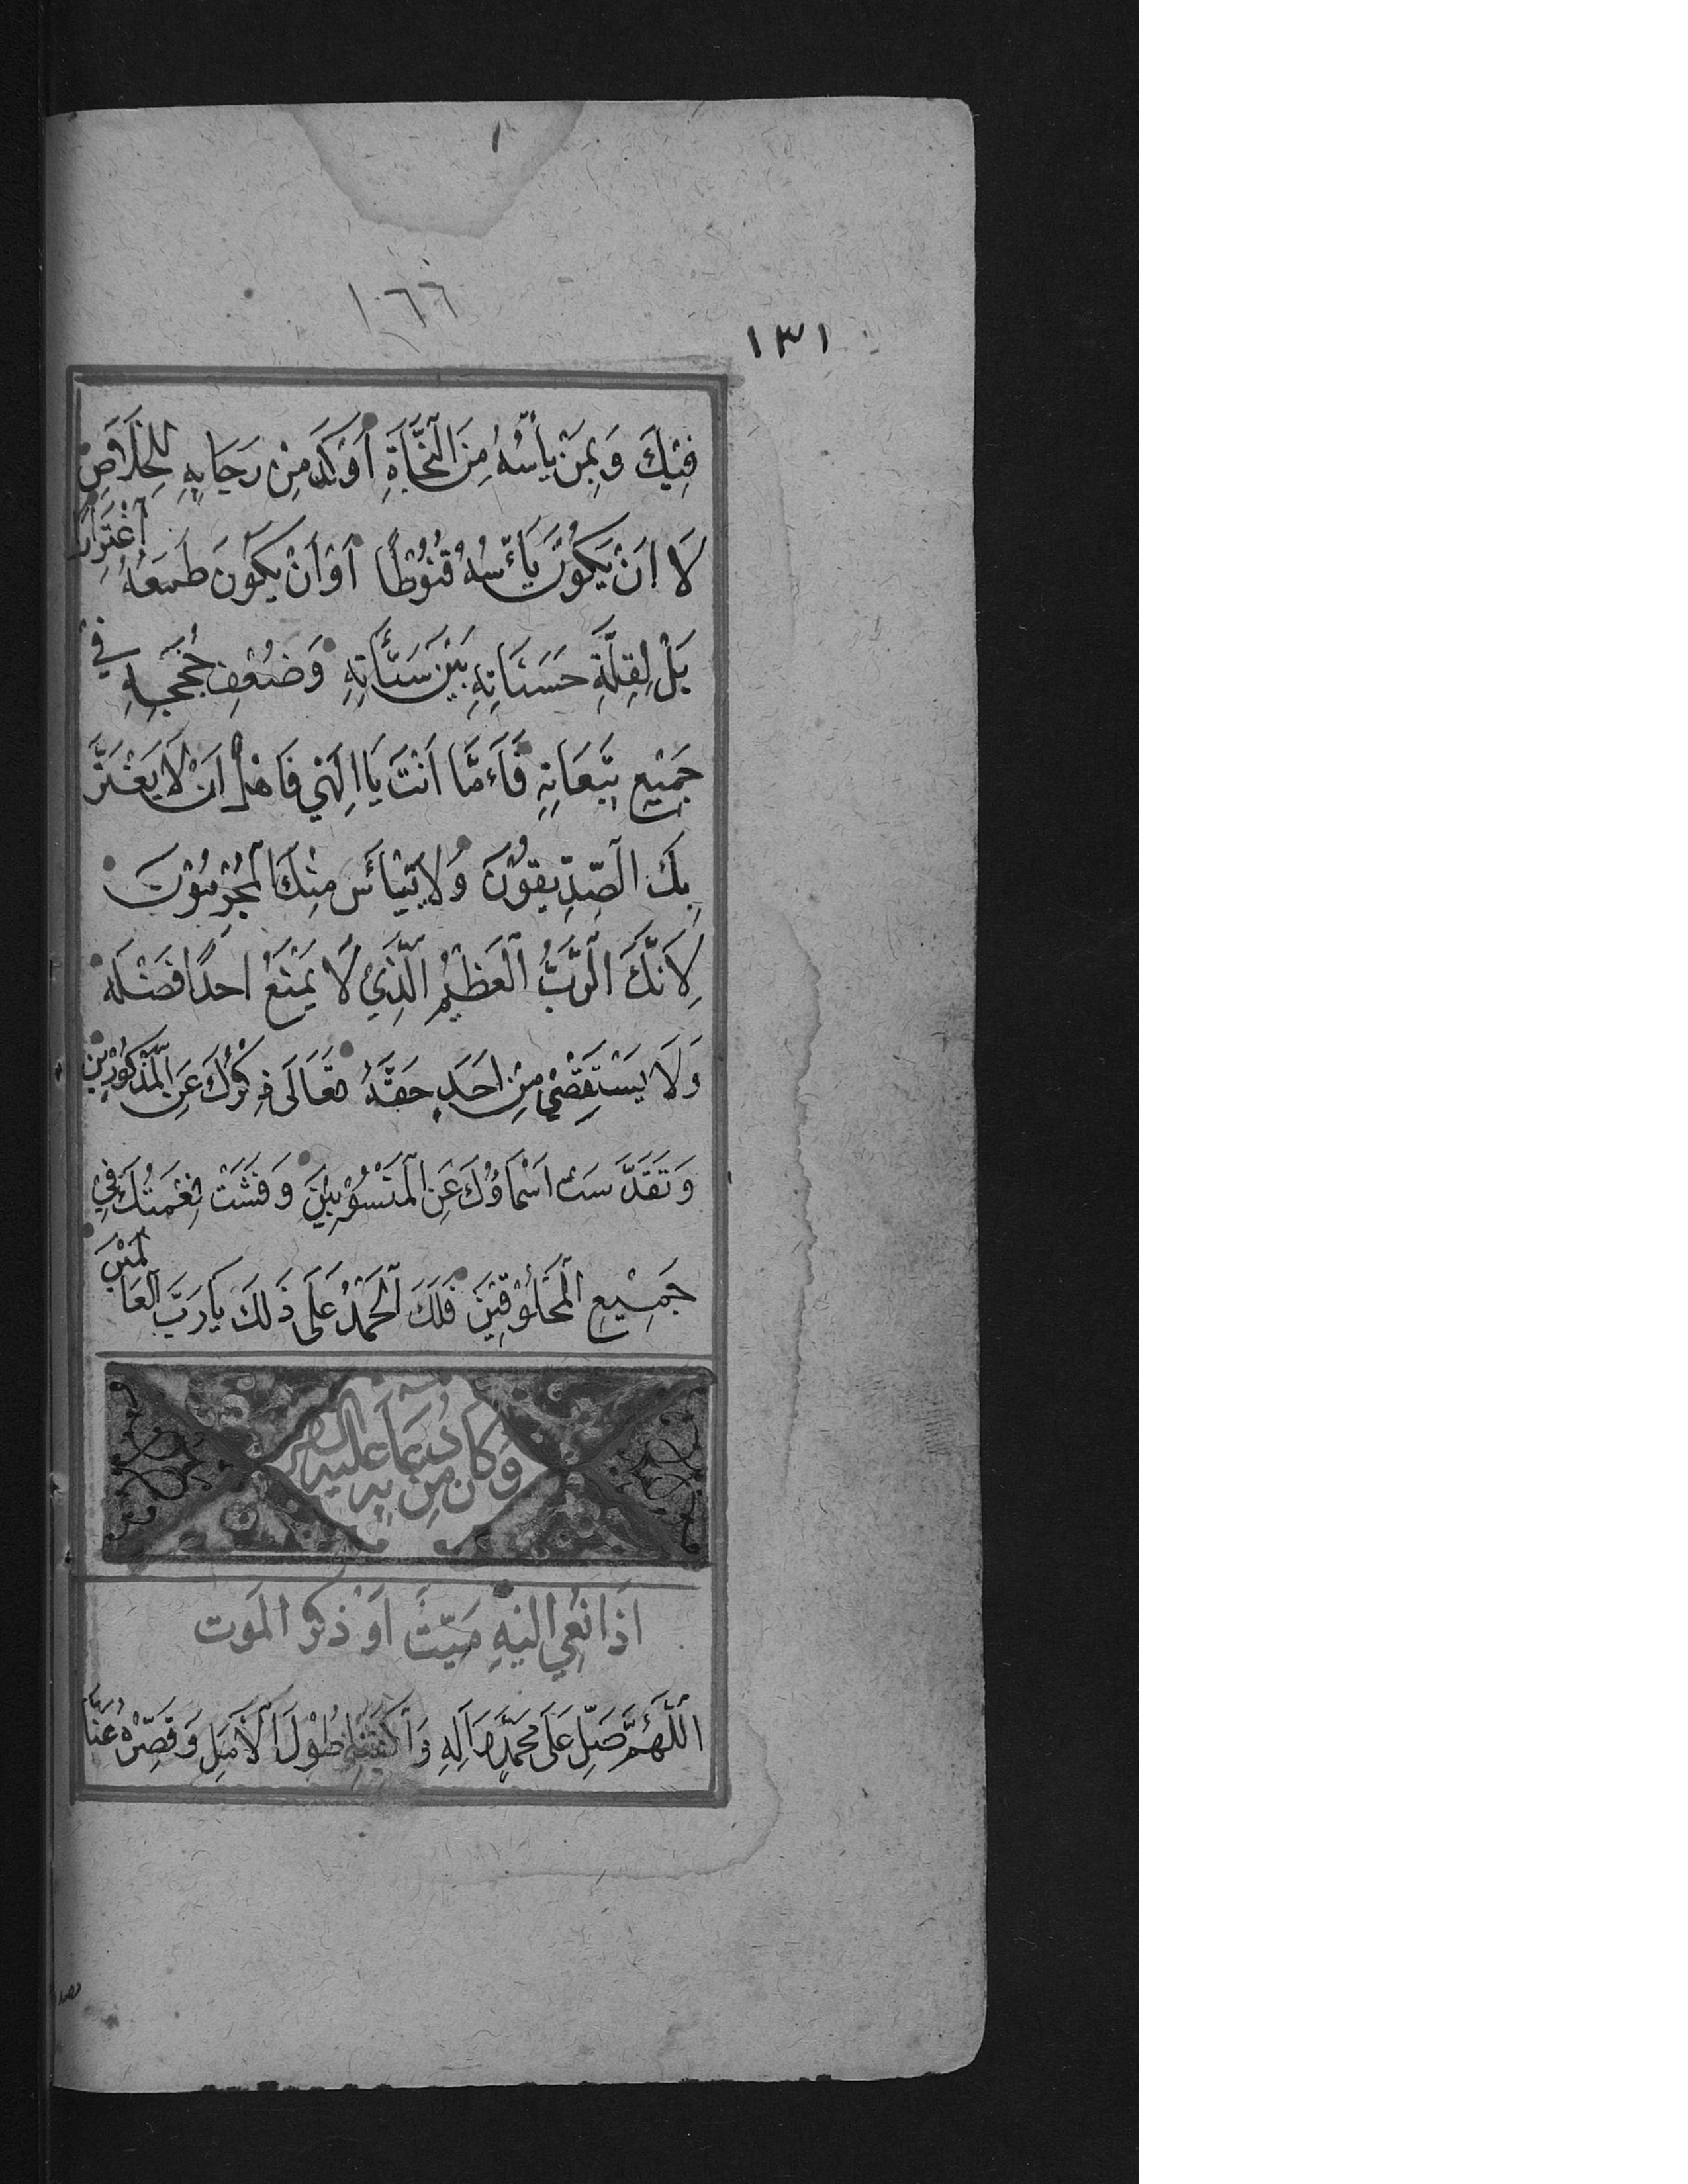 ١٦٦
١٣١
فِيْكَ وَبِمَنْ يَأْسُهُ مِنَ النَّجَاةِ أَوْكَدُ مِنْ رَجَايِهِ لِلْخَلَاصِ
لَا اَنْ يَكُوْنَ يَأْسُهُ قُنُوْطًا اَوْ اَنْ يَكُونَ طَمَعُهُ اغْتِرَارًا
بَلْ لِقِلَّةِ حَسَنَاتِهِ بَيْنَ سَيِّأَتِهِ وَضَعْفِ حُجَجِهِ فِي
جَمِيْعِ تَبِعَاتِهِ فَاَمَّا اَنْتَ يَا اِلَهِي فَاَهْلٌ اَنْ لَا يَغْتَرَّ
بِكَ الصِّدِّيقُوْنَ وَلَا يَيْأَسَ مِنْكَ الْمُجْرِمُوْنَ
لِاَنَّكَ الرَّبُّ الْعَظِيْمُ الَّذِيْ لَا يَمْنَعُ اَحَدًا فَضْلَهُ
وَلَا يَسْتَقْصِيْ مِنْ اَحَدٍ حَقَّهُ تَعَالَى ذِكْرُكَ عَنِ الْمَذْكُوْرِيْنَ
وَتَقَدَّسَتْ اَسْمَاؤُكَ عَنِ الْمَنْسُوْبِيْنَ وَفَشَتْ نِعْمَتُكَ فِيْ
جَمِيْعِ الْمَخْلُوْقِيْنَ فَلَكَ الْحَمْدُ عَلَى ذَلِكَ يَا رَبَّ الْعَالَمِيْنَ
وَكَانَ مِنْ دُعَائِهِ عَلَيْهِ السَّلَامُ
اذَا نُعِيَ اِلَيْهِ مَيِّتٌ اَوْ ذَكَرَ الْمَوت
اَللَّهُمَّ صَلِّ عَلَى مُحَمَّدٍ وَاَلِهِ وَاكْفِنَا طُوْلَ الْاَمَلِ وَقَصِّرْهُ عَنَّا